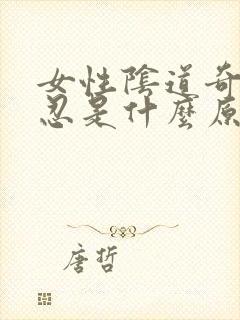 女性陰道奇
忍是什麼原
唐哲